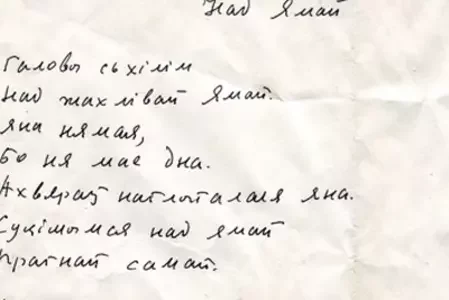 Над Ямай
Галовы сьхілім
Над жахлівай Ямай.
Яна нямая,
Бо ня мае дна.
Ахвяраў наглыталася яна.
Сукімымся над ямай
Прагнай самай.